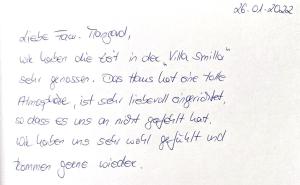 26.01.2022
Liebe Frau
wir haben die Zeit in der „Villa Smilla"
sehr genossen. Das Haus hat eine tolle
Atmosphäre, ist sehr liebevoll eingerichtet,
so dass es uns an nichts gefehlt hat.
Wir haben uns sehr wohl gefühlt und
kommen gerne wieder.